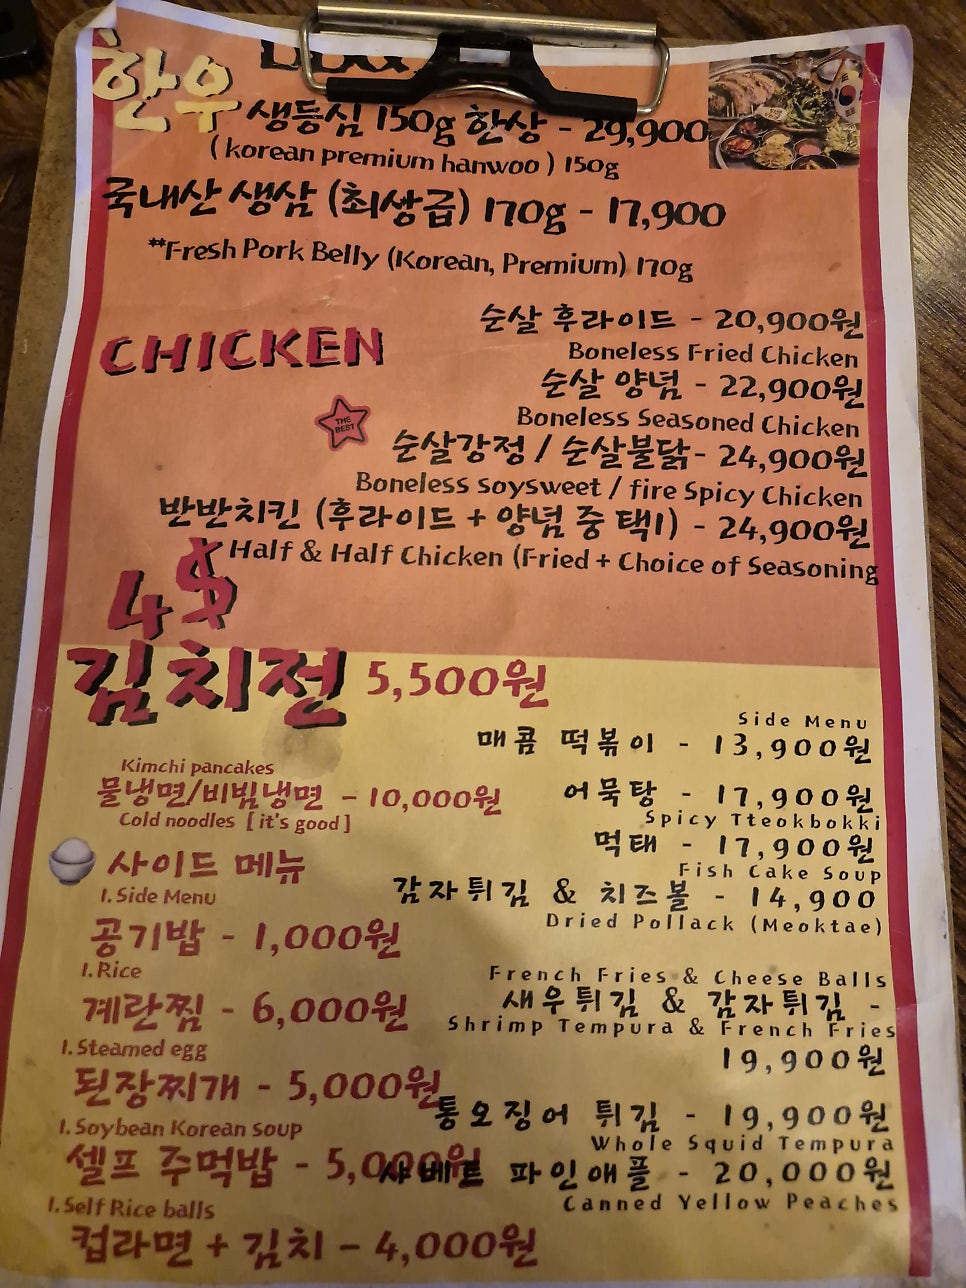 한우 생등심 150g 한상 - 29,900
( korean premium hanwoo ) 150g
국내산 생삼 (최생급) 170g - 17,900
**Fresh Pork Belly (Korean, Premium) 170g
CHICKEN
THE BEST
순살 후라이드 - 20,900원
Boneless Fried Chicken
순살 양념 - 22,900원
Boneless Seasoned Chicken
순살강정 / 순살불닭- 24,900원
Boneless soysweet / fire Spicy Chicken
반반치킨 (후라이드 + 양념 중 택1) - 24,900원
Half & Half Chicken (Fried + Choice of Seasoning
4$
김치전 5,500원
Kimchi pancakes
물냉면/비빔냉면 - 10,000원
Cold noodles [ it's good ]
사이드 메뉴
1. Side Menu
공기밥 - 1,000원
1. Rice
계란찜 - 6,000원
1. Steamed egg
된장찌개 - 5,000원
1. Soybean Korean soup
셀프 주먹밥 - 5,000원
1. Self Rice balls
컵라면 + 김치 - 4,000원
Side Menu
매콤 떡볶이 - 13,900원
어묵탕 - 17,900원
Spicy Tteokbokki
먹태 - 17,900원
Fish Cake Soup
감자튀김 & 치즈볼 - 14,900
Dried Pollack (Meoktae)
French Fries & Cheese Balls
새우튀김 & 감자튀김 -
Shrimp Tempura & French Fries
19,900원
통오징어 튀김 - 19,900원
Whole Squid Tempura
샤베트 파인애플 - 20,000원
Canned Yellow Peaches